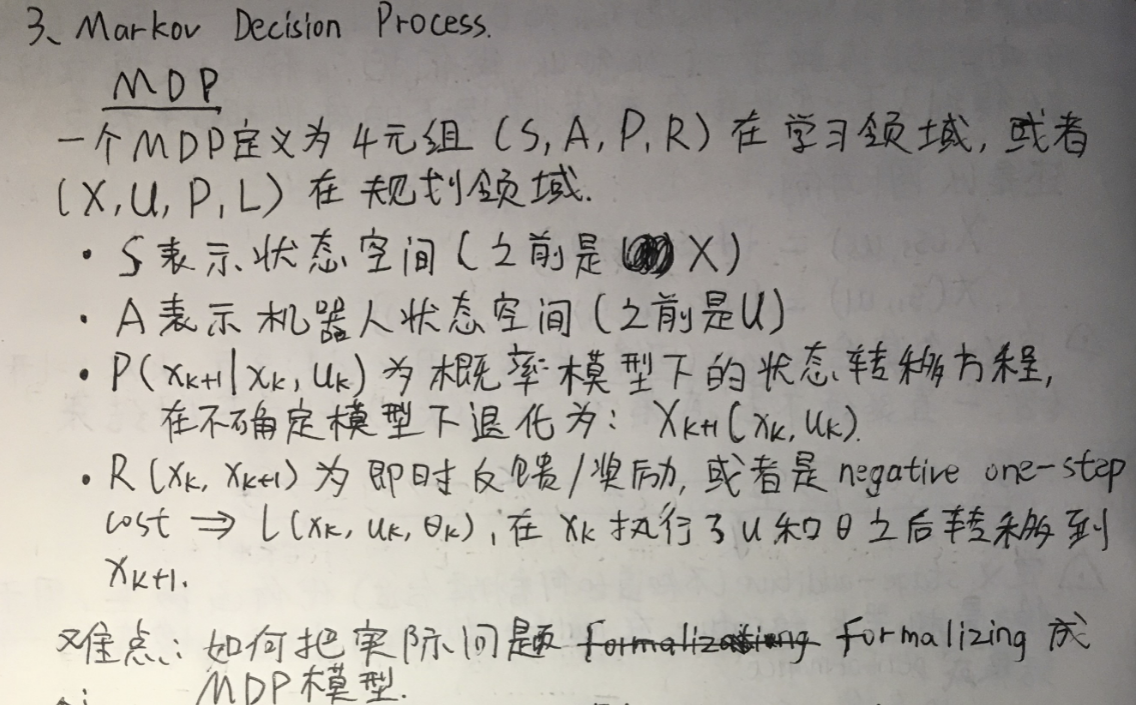 3、Markov Decision Process.
MDP
一个MDP定义为4元组 (S, A, P, R) 在学习领域, 或者
(X, U, P, L) 在规划领域.
· S表示状态空间 (之前是 X)
· A表示机器人状态空间 (之前是U)
· P(xk+1|xk, uk) 为概率模型下的状态转移方程,
在不确定模型下退化为: Xk+1(xk, uk).
· R(xk, xk+1) 为即时反馈/奖励, 或者是 negative one-step
cost ⇒ L(xk, uk, θk), 在 xk 执行了 u 和 θ 之后转移到
xk+1.
难点: 如何把实际问题 formalizing 成
MDP模型.